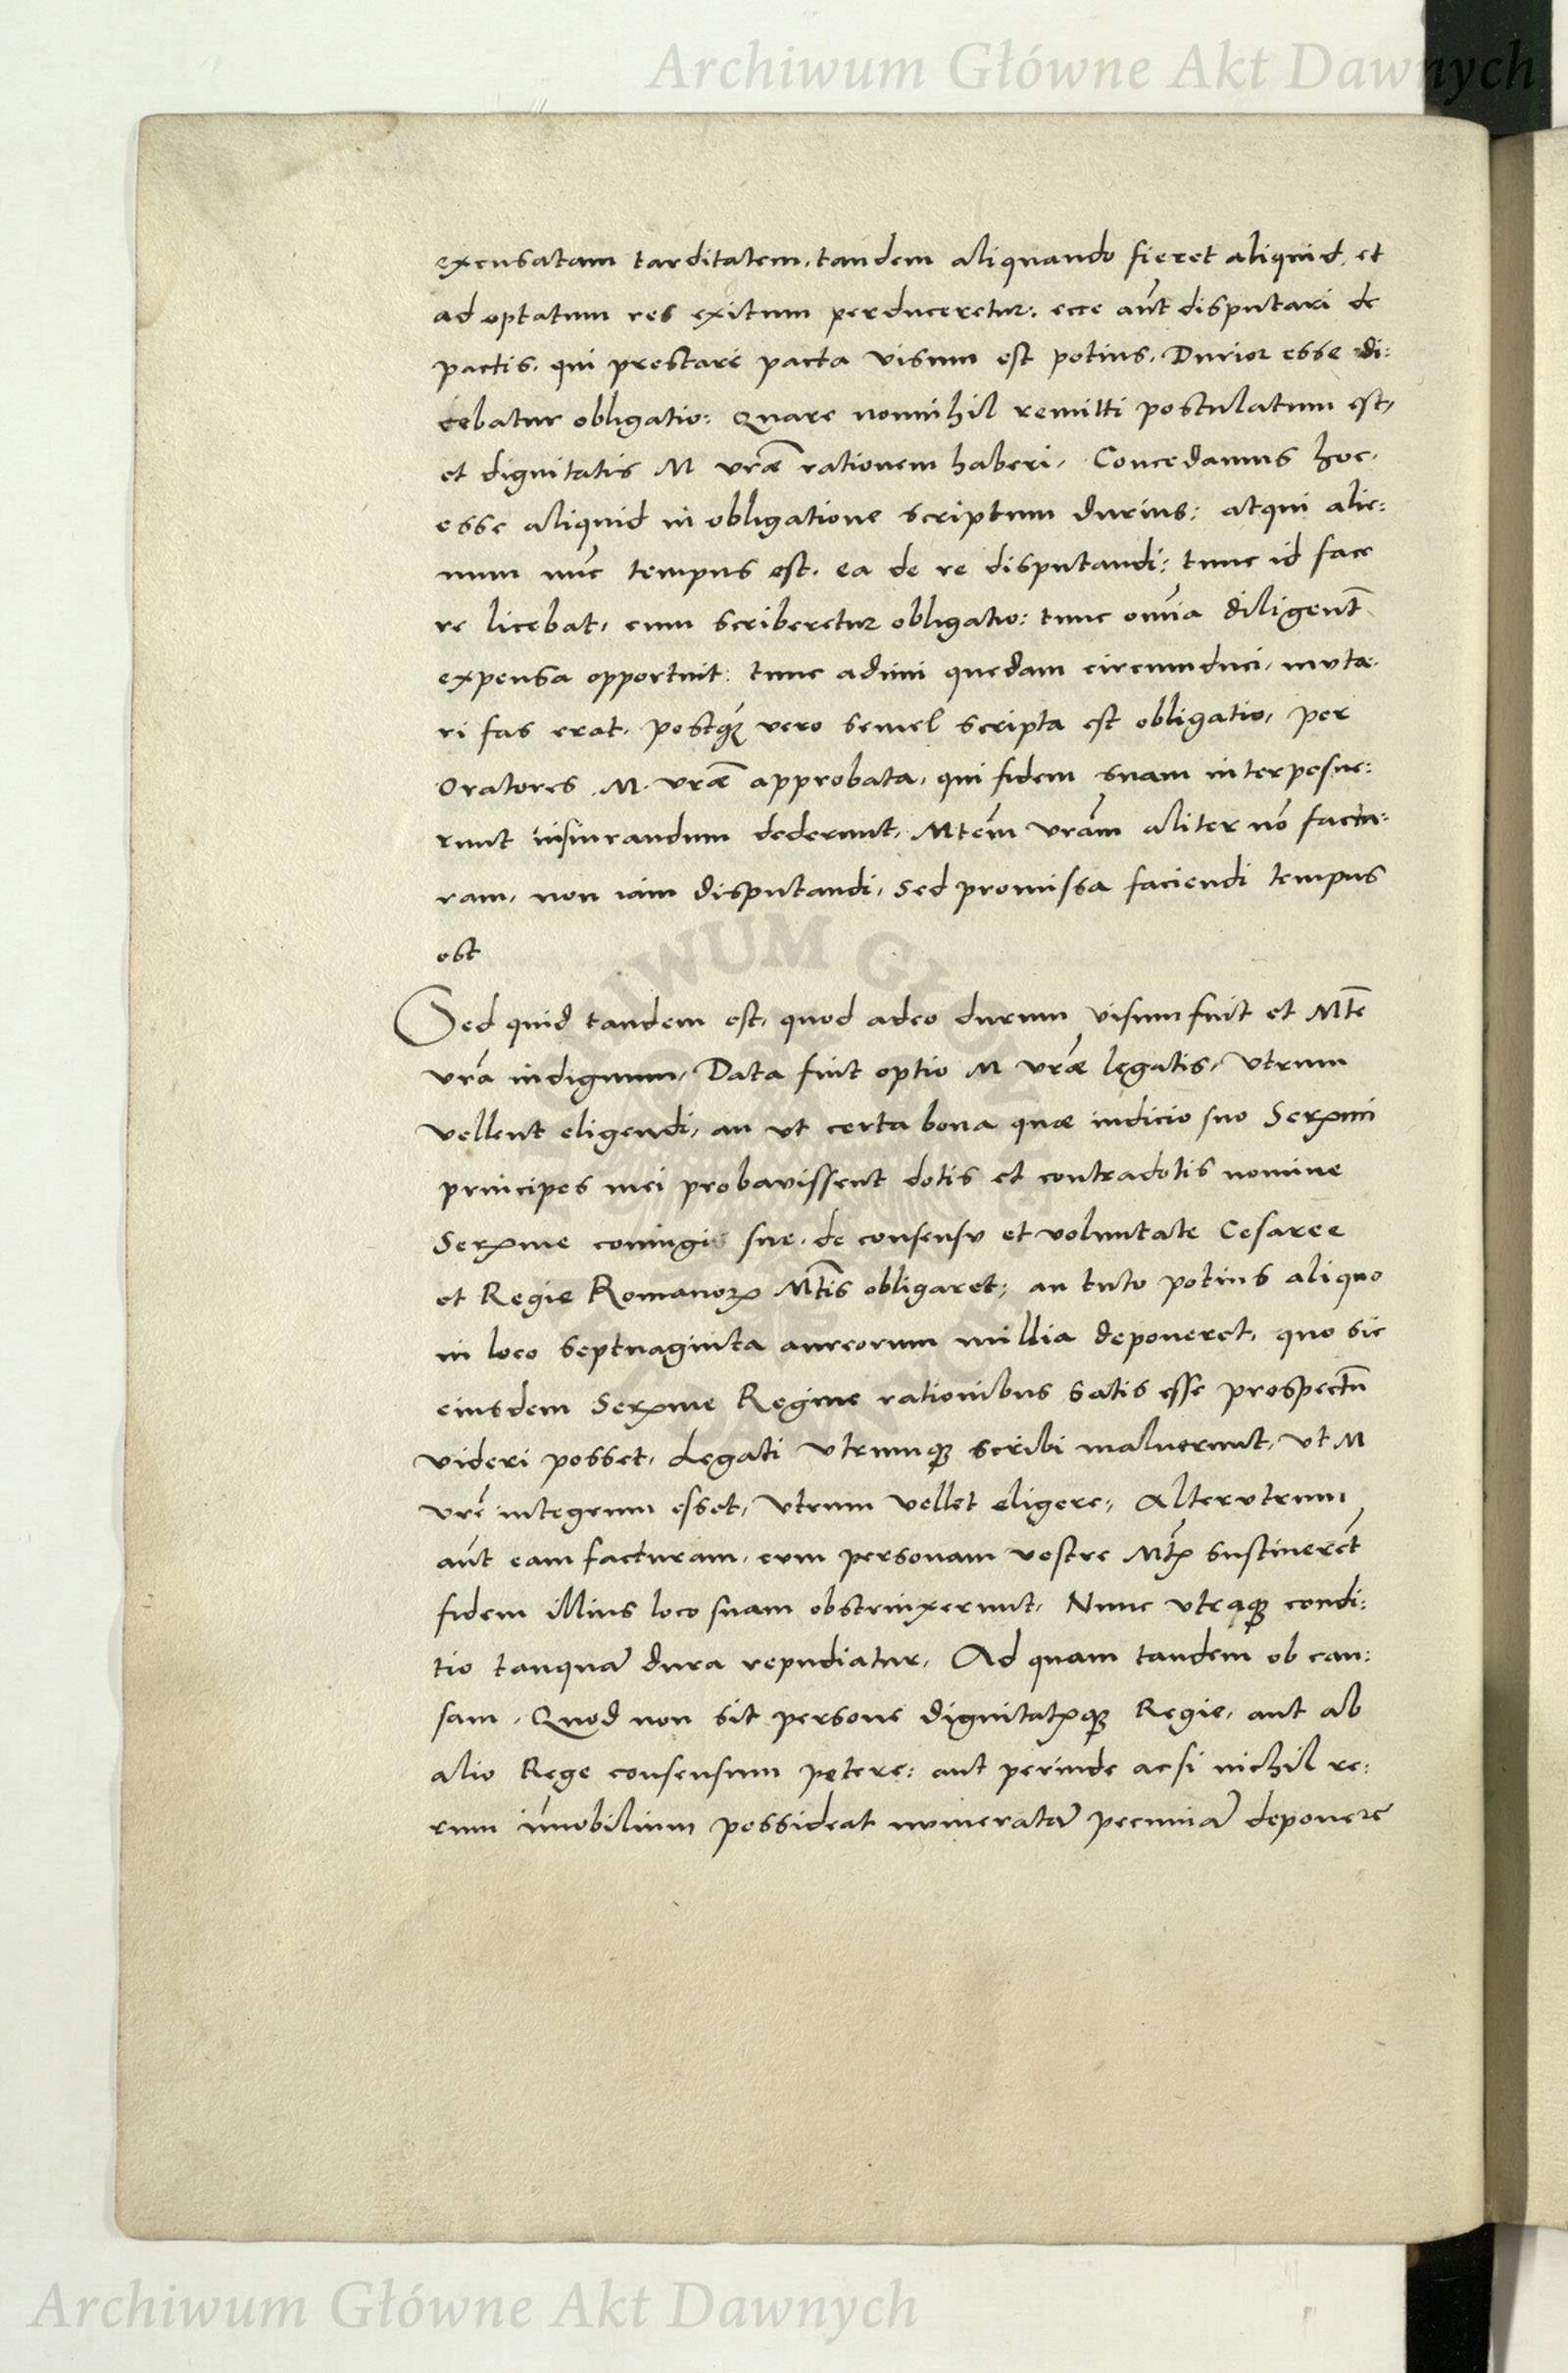 Archiwum Główne Akt Dawnych
excusatam tarditatem, tandem aliquando fieret aliquid, et
ad optatum res exitum perduceretur: ecce aūt disputari de
pactis, qui prestare pacta visum est potius. Durior esse di:
cebatur obligatio: Quare nonnihil remitti postulatum est,
et dignitatis M vrāe rationem haberi. Concedamus hoc,
esse aliquid in obligatione scriptum durius: atqui alie:
num nūc tempus est, ea de re disputandi: tunc id face
re licebat, cum scriberetur obligatio: tunc om̄ia diligent̄
expensa opportuit: tunc adimi quedam circumduci, muta:
ri fas erat, postq̄ vero semel scripta est obligatio, per
Oratores M. vrāe approbata, qui fidem suam interposue:
runt iusiurandum dederunt, Mtēm vrām aliter nō factu:
ram, non iam disputandi, sed promissa faciendi tempus
est
Sed quid tandem est, quod adeo durum visum fuit et Mtē
vrā indignum, Data fuit optio M vrāe legatis, vtrum
vellent eligendi, an vt certa bona quae iudicio suo Serꝫmi
principes mei probavissent dotis et contradotis nomine
Serꝫme coniugis sue, de consensu et voluntate Cesaree
et Regie Romanorꝫ Mt̄is obligaret; an tuto potius aliquo
in loco septuaginta aureorum millia deponeret, quo sic
eiusdem Serꝫme Regine rationibus satis esse prospectū
videri posset, Legati vtrumqꝫ scribi maluerunt, vt M
vrē integrum esset, vtrum vellet eligere; Alterutrum
aūt eam facturam, cum personam vestre Mtꝫ sustinerēt
fidem illius loco suam obstrinxerunt. Nunc vtraqꝫ condi:
tio tanquā dura repudiatur. Ad quam tandem ob cau:
sam, Quod non sit persone dignitatꝫqꝫ Regie, aut ab
alio Rege consensum petere: aut perinde acsi nichil re:
rum im̄obilium possideat numeratā pecuniā deponere
Archiwum Główne Akt Dawnych